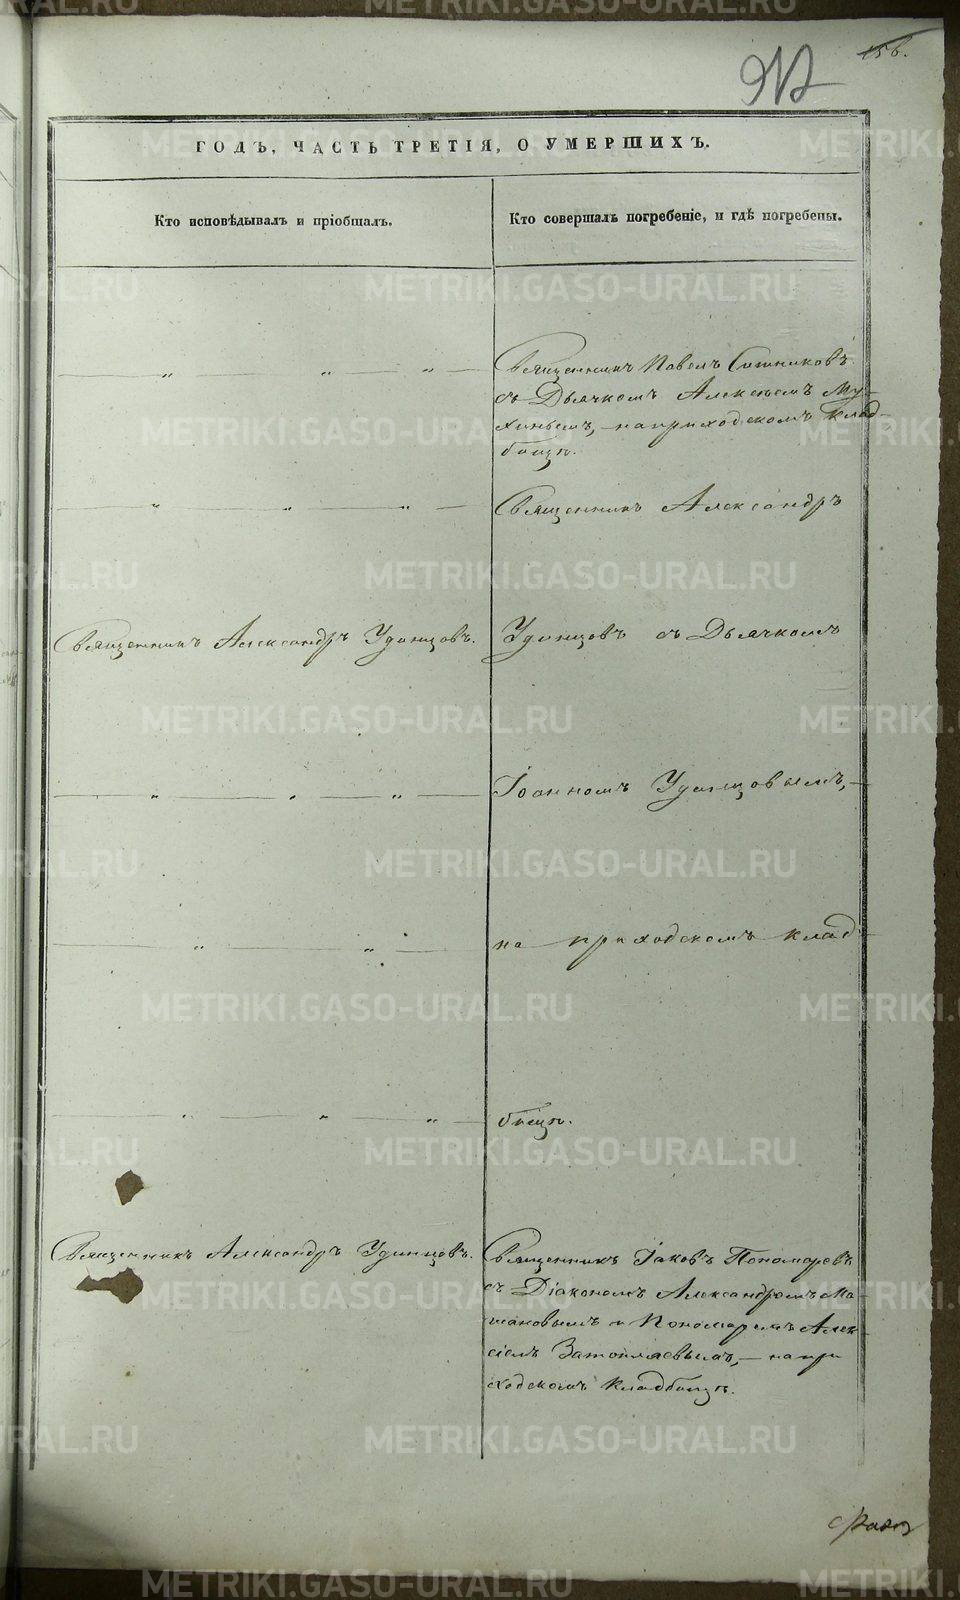 156.
917
ГОДЪ, ЧАСТЬ ТРЕТІЯ, О УМЕРШИХЪ.
Кто исповѣдывалъ и пріобщалъ.
Кто совершалъ погребеніе, и гдѣ погребены.
Священникъ Павелъ Ситниковъ
съ Дьячкомъ Алексѣемъ Му-
хинымъ, на приходскомъ клад-
бищѣ.
Священникъ Александръ
Священникъ Александръ Удинцовъ.
Удинцовъ съ Дьячкомъ
Іоанномъ Удинцовымъ,
на приходскомъ клад-
бищѣ.
Священникъ Александръ Удинцовъ.
Священникъ Іаковъ Пономаревъ
съ Діакономъ Александромъ
и Пономаремъ Алек-
сіемъ на при
ходскомъ кладбищѣ.
METRIKI.GASO-URAL.RU